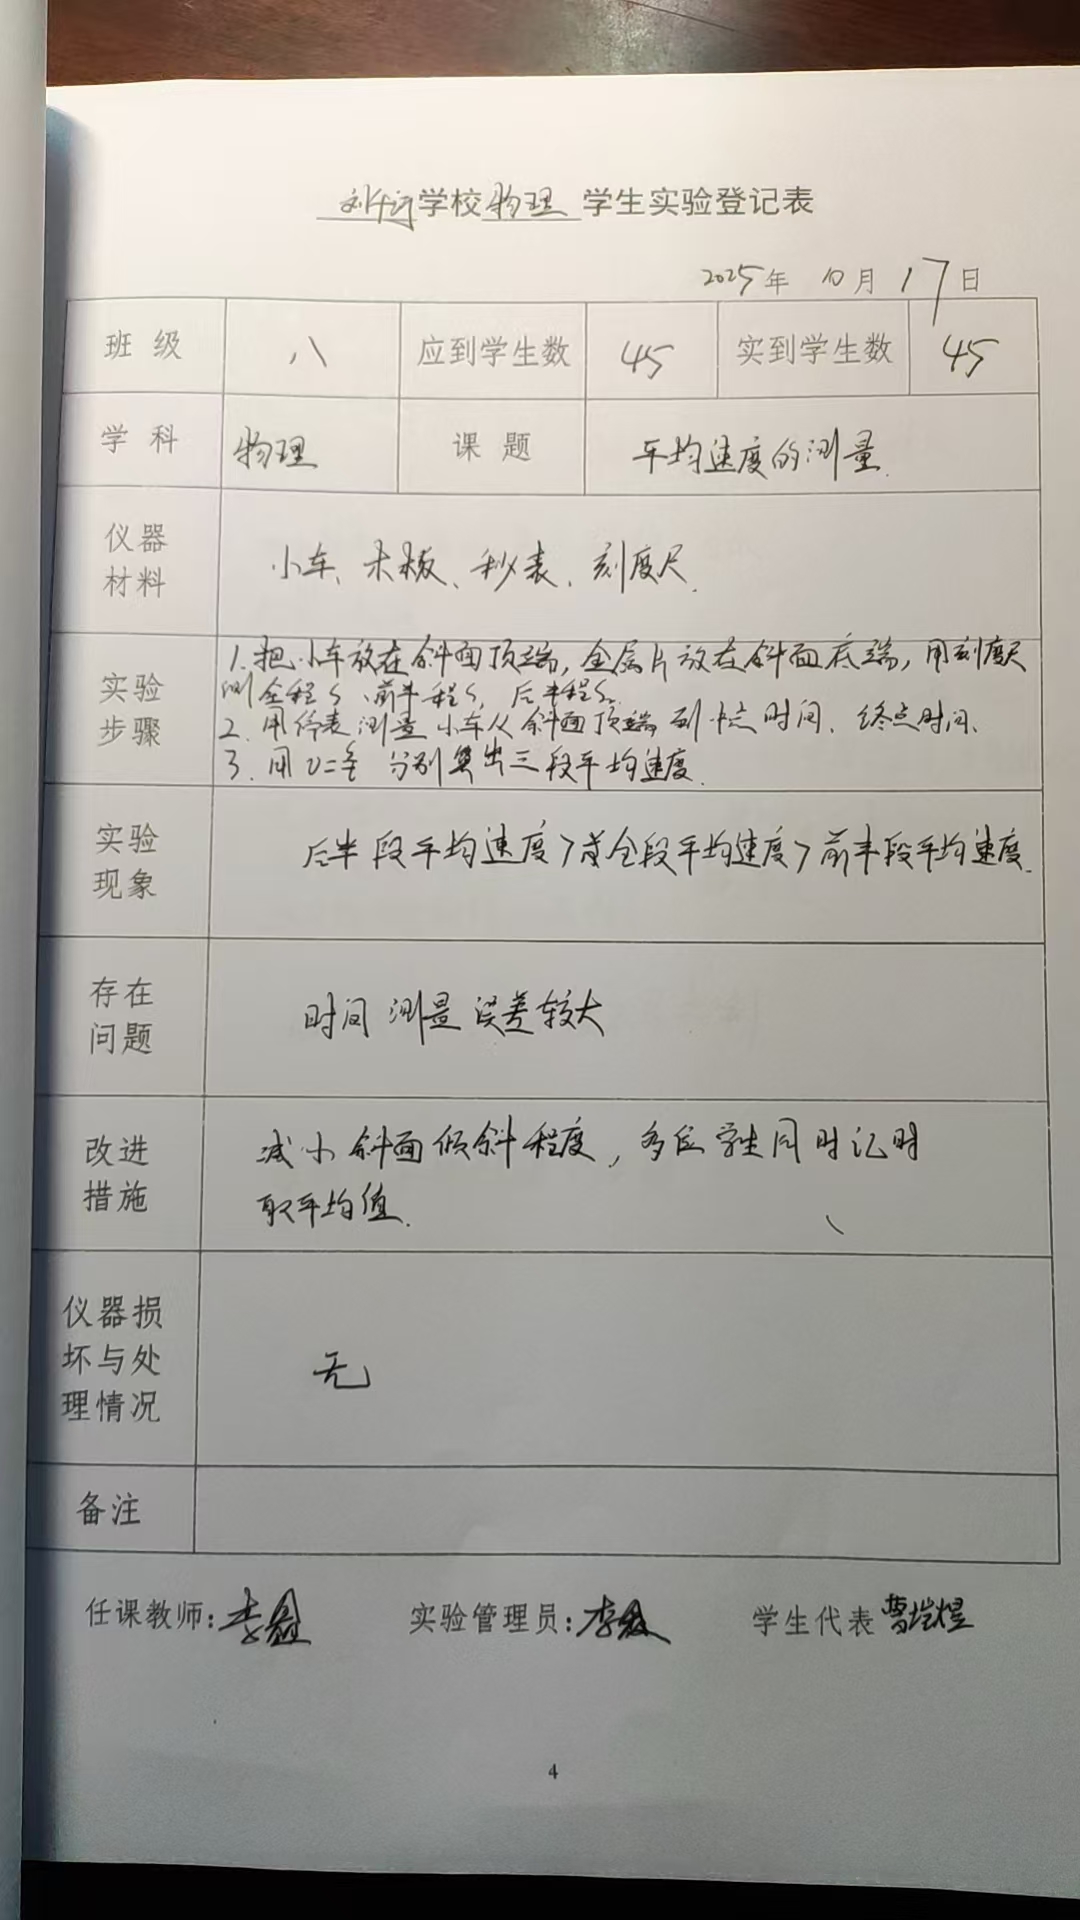 学校物理 学生实验登记表
2025年 10月 17日
班 级 八 应到学生数 45 实到学生数 45
学 科 物理 课 题 平均速度的测量.
仪器
材料
小车、木板、秒表、刻度尺.
实验
步骤
1.把小车放在斜面顶端,金属片放在斜面底端,用刻度尺
测全程s、前半程s₁ 后半程s₂
2.用停表测量小车从斜面顶端到中点时间、终点时间、
3.用v=s/t 分别算出三段平均速度.
实验
现象
后半段平均速度>全段平均速度>前半段平均速度.
存在
问题
时间测量误差较大
改进
措施
减小斜面倾斜程度,多位学生同时记时
取平均值.
仪器损
坏与处
理情况
无
备注
任课教师: 实验管理员: 学生代表
4